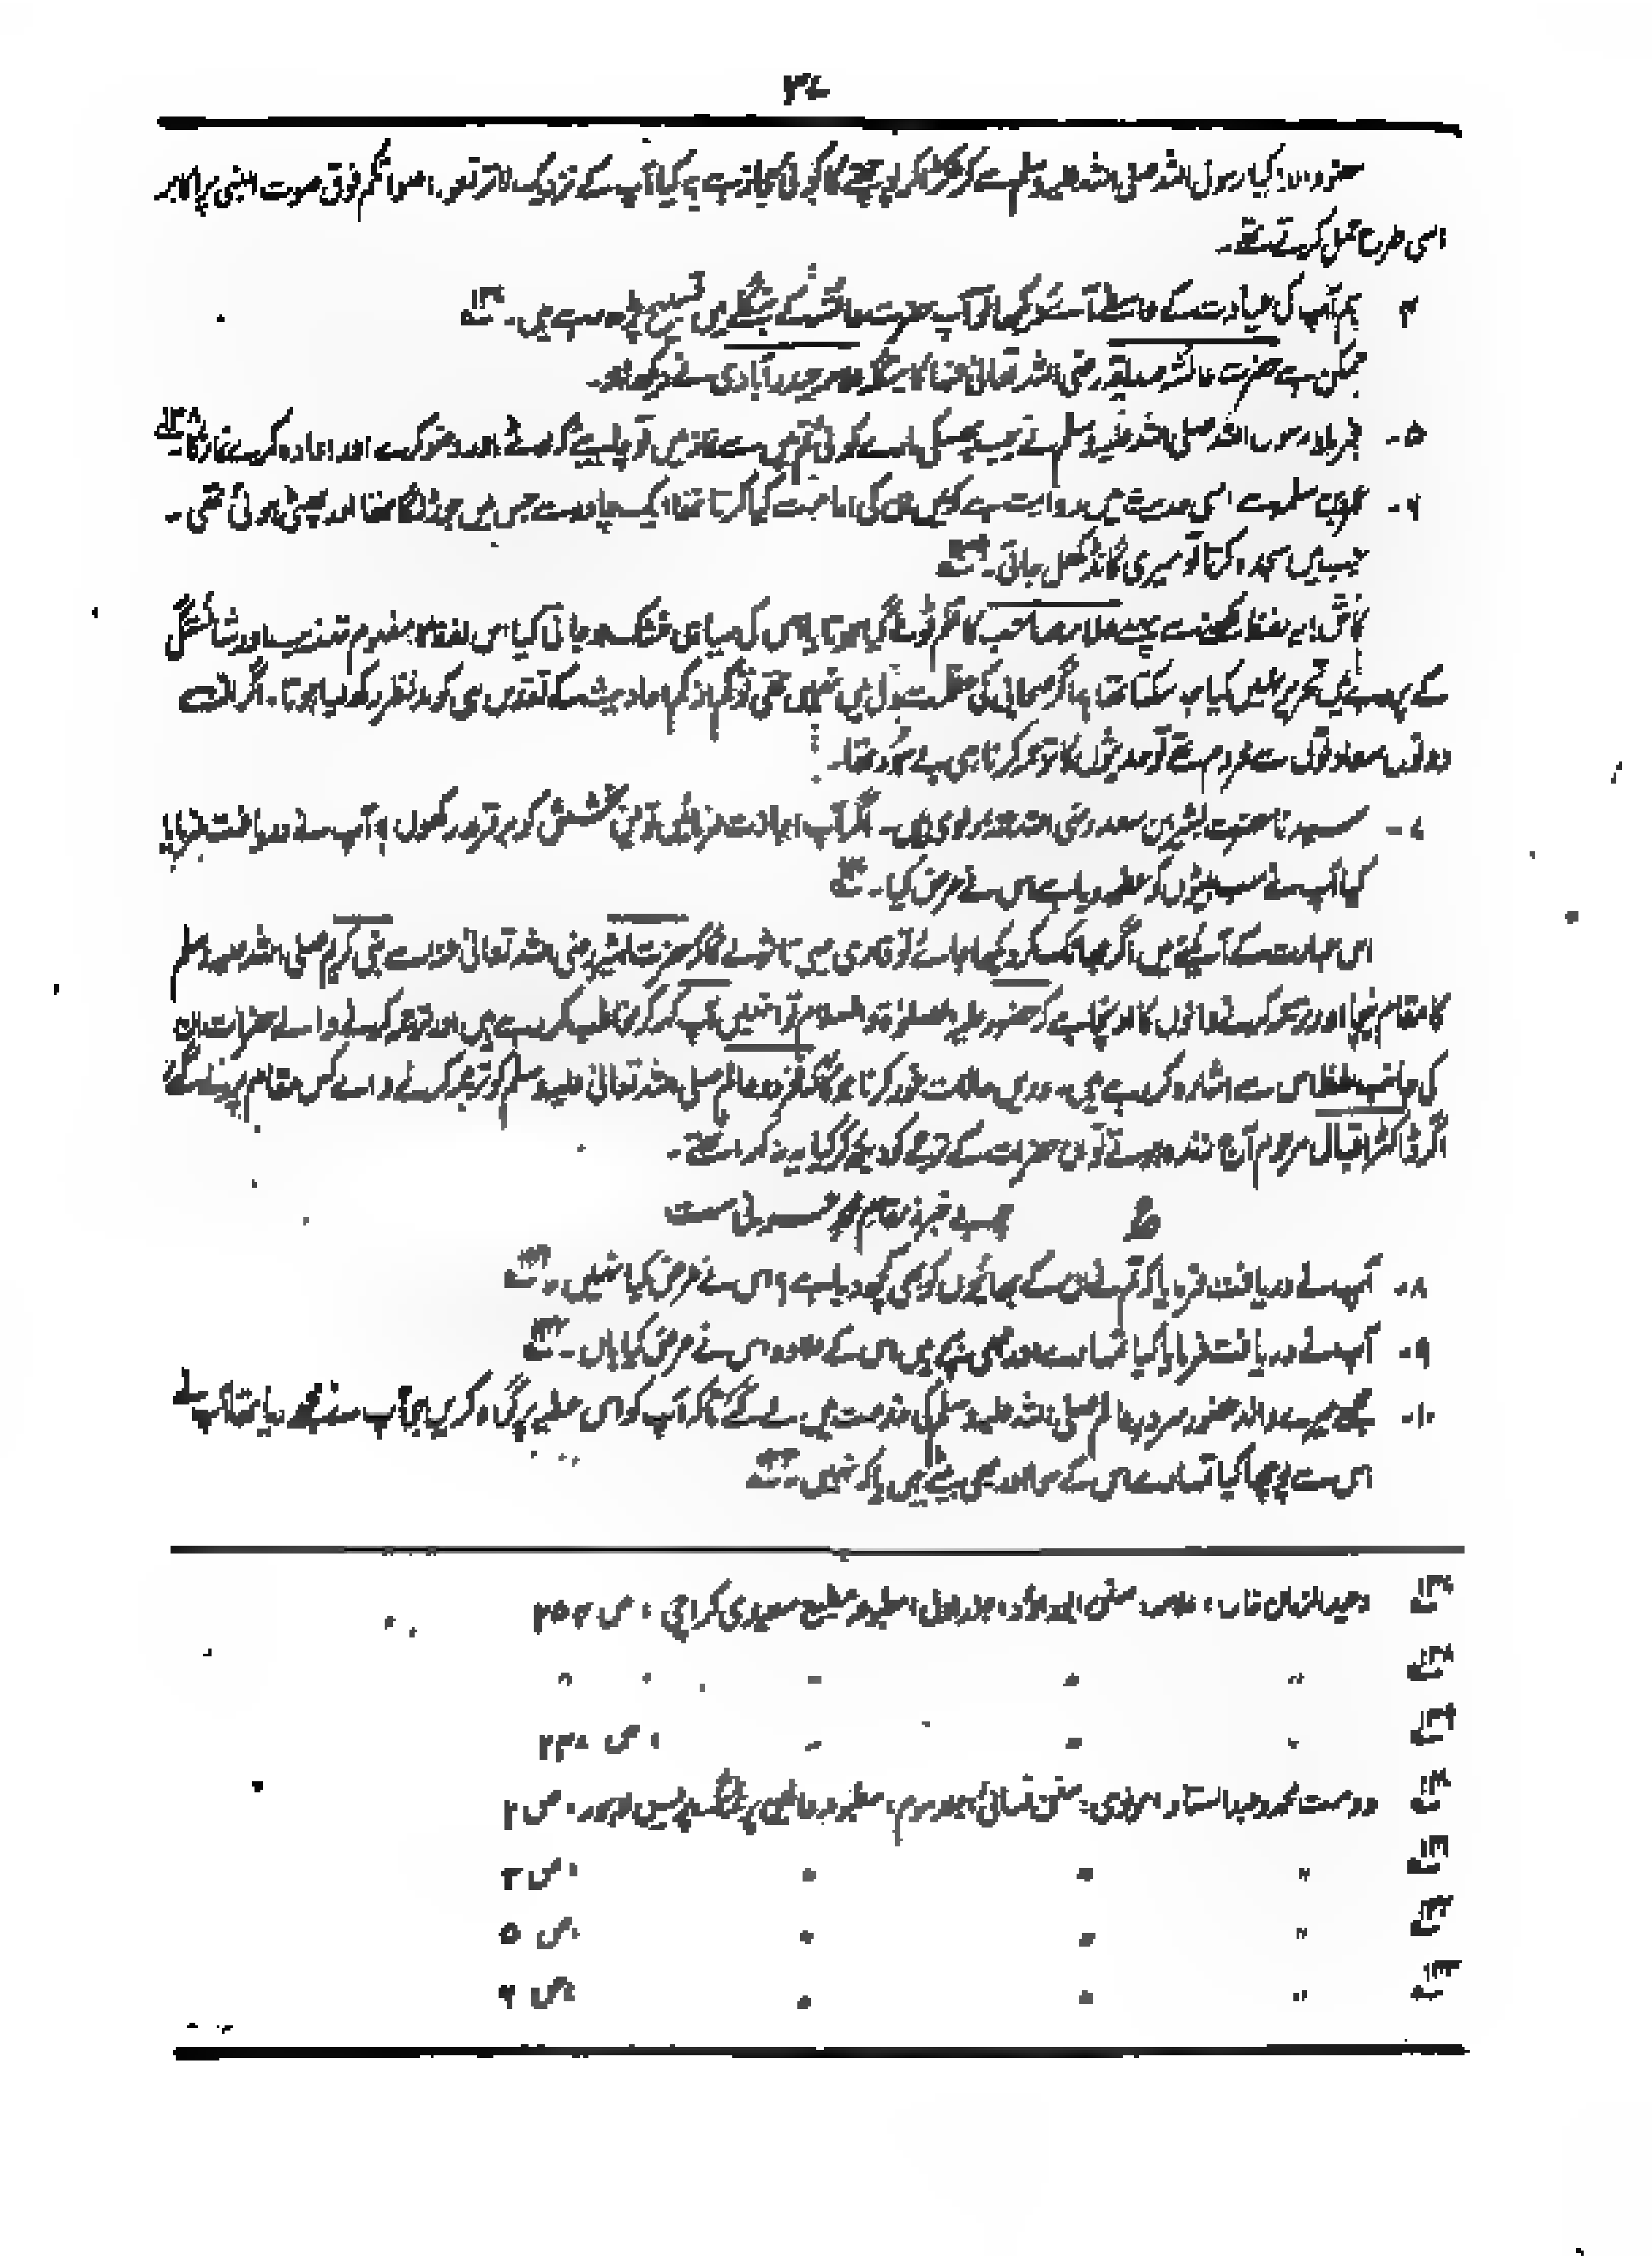 ۳۷
حضور والا! کیا رسول اللہ صلی اللہ علیہ وسلم سے کو پوچھنے کا کوئی مجاز ہے؟ کیا آپ کے نزدیک لا ترفعوا اصواتکم فوق صوت النبی پر اکابر
اسی طرح عمل کرتے تھے۔
۴ ہم آپ کی عیادت کے واسطے آئے دیکھا تو آپ حضرت عائشہ کے بنگلے میں تسبیح پڑھ رہے ہیں۔
ممکن ہے حضرت عائشہ صدیقہ رضی اللہ تعالیٰ عنہا کا بنگلہ علامہ حیدرآبادی نے دیکھا ہو۔
۵۔ فرمایا رسول اللہ صلی اللہ علیہ وسلم نے جب پھسکی مارے کوئی تم میں سے نماز میں تو چاہیے کہ لوٹے اور وضو کرے اور اعادہ کرے نماز کا۔
۶۔ عمرو بن سلمہ سے اسی حدیث میں روایت ہے کہ میں ان کی امامت کیا کرتا تھا ایک چادر سے جس میں جوڑ لگا تھا اور پھٹی ہوئی تھی۔
جب میں سجدہ کرتا تو میری گانڈ کھل جاتی۔
کاش! یہ لفظ لکھنے سے پہلے علامہ صاحب کا قلم ٹوٹ گیا ہوتا یا اس کی سیاہی خشک ہو جاتی کیا اس لفظ کا مفہوم تہذیب اور شائستگی
کے پیرائے میں تحریر نہیں کیا جا سکتا تھا؟ اگر صحابی کی عظمت دل میں نہیں تھی تو کم از کم احادیث کے تقدس ہی کو مدنظر رکھ لیا ہوتا۔ اگر ان
دونوں سعادتوں سے محروم تھے تو حدیثوں کا ترجمہ کرنا ہی بے سود تھا۔
۷۔ سیدنا حضرت بشیر بن سعد رضی اللہ عنہ راوی ہیں۔ اگر آپ اجازت فرمائیں تو میں بخشش کو برقرار رکھوں؟ آپ نے دریافت فرمایا
کیا آپ نے سب بیٹوں کو عطیہ دیا ہے اس نے عرض کیا۔
اس عبارت کے آئینے میں اگر جھانک کر دیکھا جائے تو قاری یہی سمجھے گا کہ حضرت بشیر رضی اللہ تعالیٰ عنہ سے نبی کریم صلی اللہ علیہ وسلم
کا مقام نیچا اور ترجمہ کرنے والوں کا اونچا ہے کہ حضور علیہ الصلوٰۃ والسلام تو انہیں آپ کہہ کر مخاطب کر رہے ہیں اور ترجمہ کرنے والے حضرات ان
کی جانب لفظ اس سے اشارہ کر رہے ہیں۔ دریں حالات غور کرنا ہوگا کہ فخر دو عالم صلی اللہ تعالیٰ علیہ وسلم کو ترجمہ کرنے والے کس مقام پر
اگر ڈاکٹر اقبال مرحوم آج زندہ ہوتے تو ان حضرات کے ترجمے کو دیکھ کر کیا یہ نہ کہہ اٹھتے۔
چہ بے خبر ز مقام محمد عربی ست
۸۔ آپ نے دریافت فرمایا کہ تم نے ان کے بھائیوں کو بھی کچھ دیا ہے؟ اس نے عرض کیا نہیں۔
۹۔ آپ نے دریافت فرمایا کیا تمہارے اور بھی بچے ہیں اس کے علاوہ اس نے عرض کیا ہاں۔
۱۰۔ مجھے میرے والد حضور سرور عالم صلی اللہ علیہ وسلم کی خدمت میں لے گئے تاکہ آپ کو اس عطیے پر گواہ کریں جو آپ نے مجھے دیا تھا آپ نے
اس سے پوچھا کیا تمہارے اس کے سوا اور بھی بیٹے ہیں یا کہ نہیں۔
وحید الزمان خاں، علامہ: سنن ابو داؤد، جلد اول، مطبوعہ مطبع سعیدی کراچی، ص ۲۵۴
" " "
" " " ، ص ۲۳۸
دوست محمد و عبد الستار، مولوی: سنن نسائی، جلد سوم، مطبوعہ عالمین پرنٹنگ پریس لاہور، ص ۲
" " " ، ص ۳
" " " ، ص ۵
" " " ، ص ۶